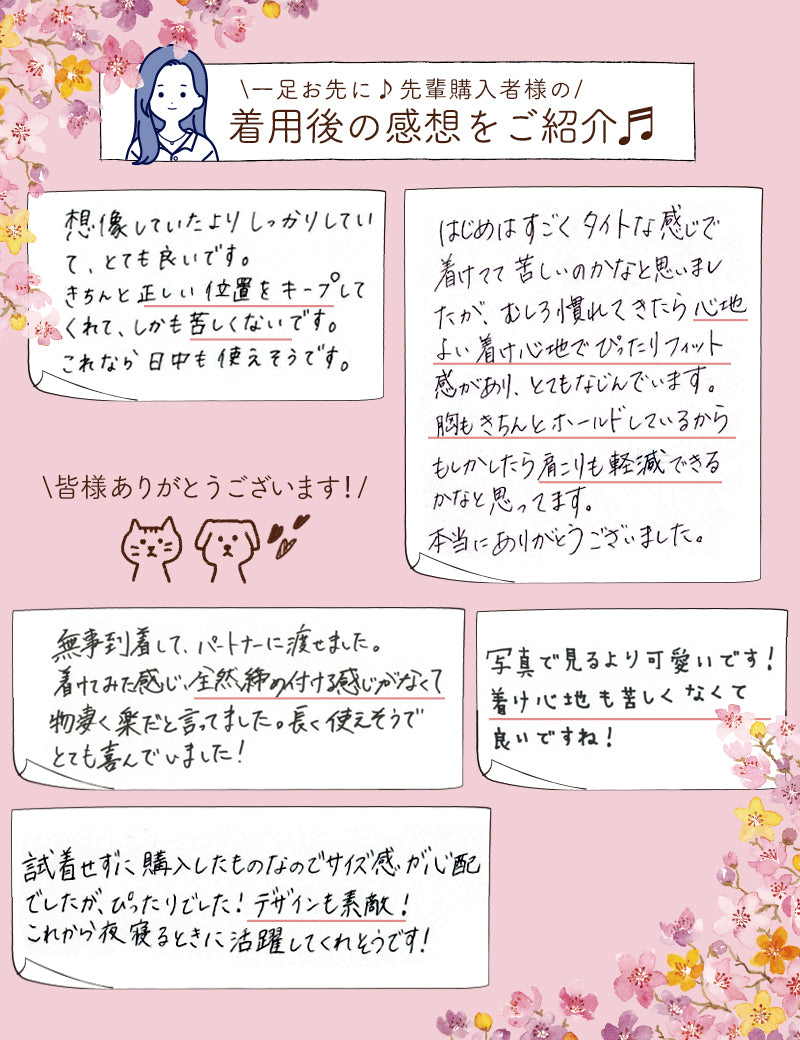 \一足お先に♪先輩購入者様の/
着用後の感想をご紹介♬
想像していたよりしっかりしてい
て、とても良いです。
きちんと正しい位置をキープして
くれて、しかも苦しくないです。
これなら日中も使えそうです。
はじめはすごくタイトな感じで
着けてて苦しいのかなと思いまし
たが、むしろ慣れてきたら心地
よい着け心地でぴったりフィット
感があり、とてもなじんでいます。
胸もきちんとホールドしているから
もしかしたら肩こりも軽減できる
かなと思ってます。
本当にありがとうございました。
\皆様ありがとうございます!/
無事到着して、パートナーに渡せました。
着けてみた感じ、全然締め付ける感じがなくて
物凄く楽だと言ってました。長く使えそうで
とても喜んでいました!
写真で見るより可愛いです!
着け心地も苦しくなくて
良いですね!
試着せずに購入したものなのでサイズ感が心配
でしたが、ぴったりでした!デザインも素敵!
これから夜寝るときに活躍してくれそうです!